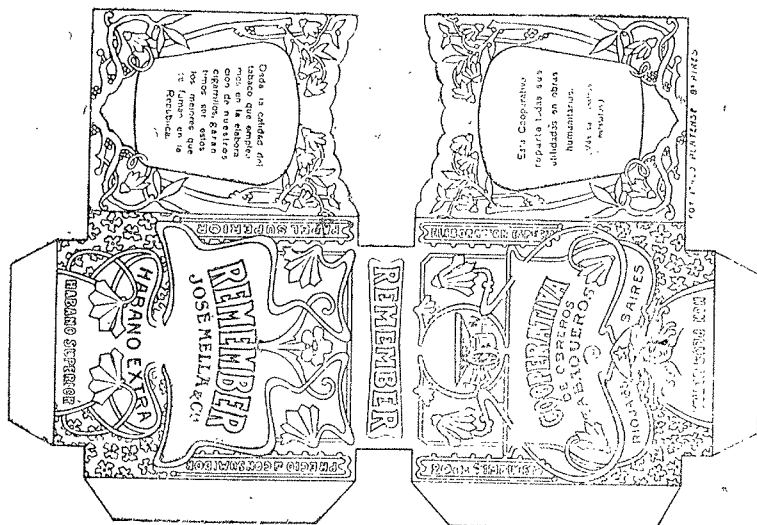 Dada la calidad del
tabaco que emplea
mos en la elabora
cion de nuestros
cigarrillos, garan
timos ser estos
los mejores que
se fuman en la
República.
Esta Cooperativa
reparte todas sus
utilidades en obras
humanitarias.
PAPEL SUPERIOR
HABANO SUPERIOR
HABANO EXTRA
REMEMBER
JOSÉ MELLA & Cia
PRECIO AL CONSUMIDOR
REMEMBER
COOPERATIVA
DE OBREROS
TABAQUEROS
RIOJA
BAIRES